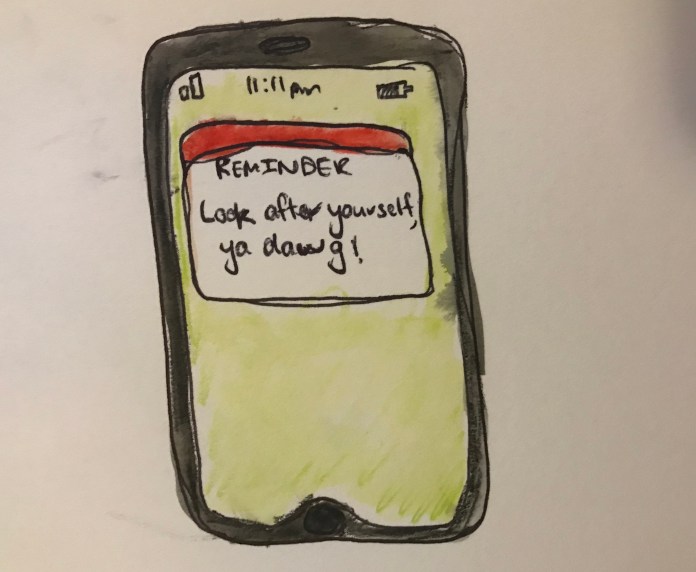 11:11pm
REMINDER
Look after yourself,
ya dawg!